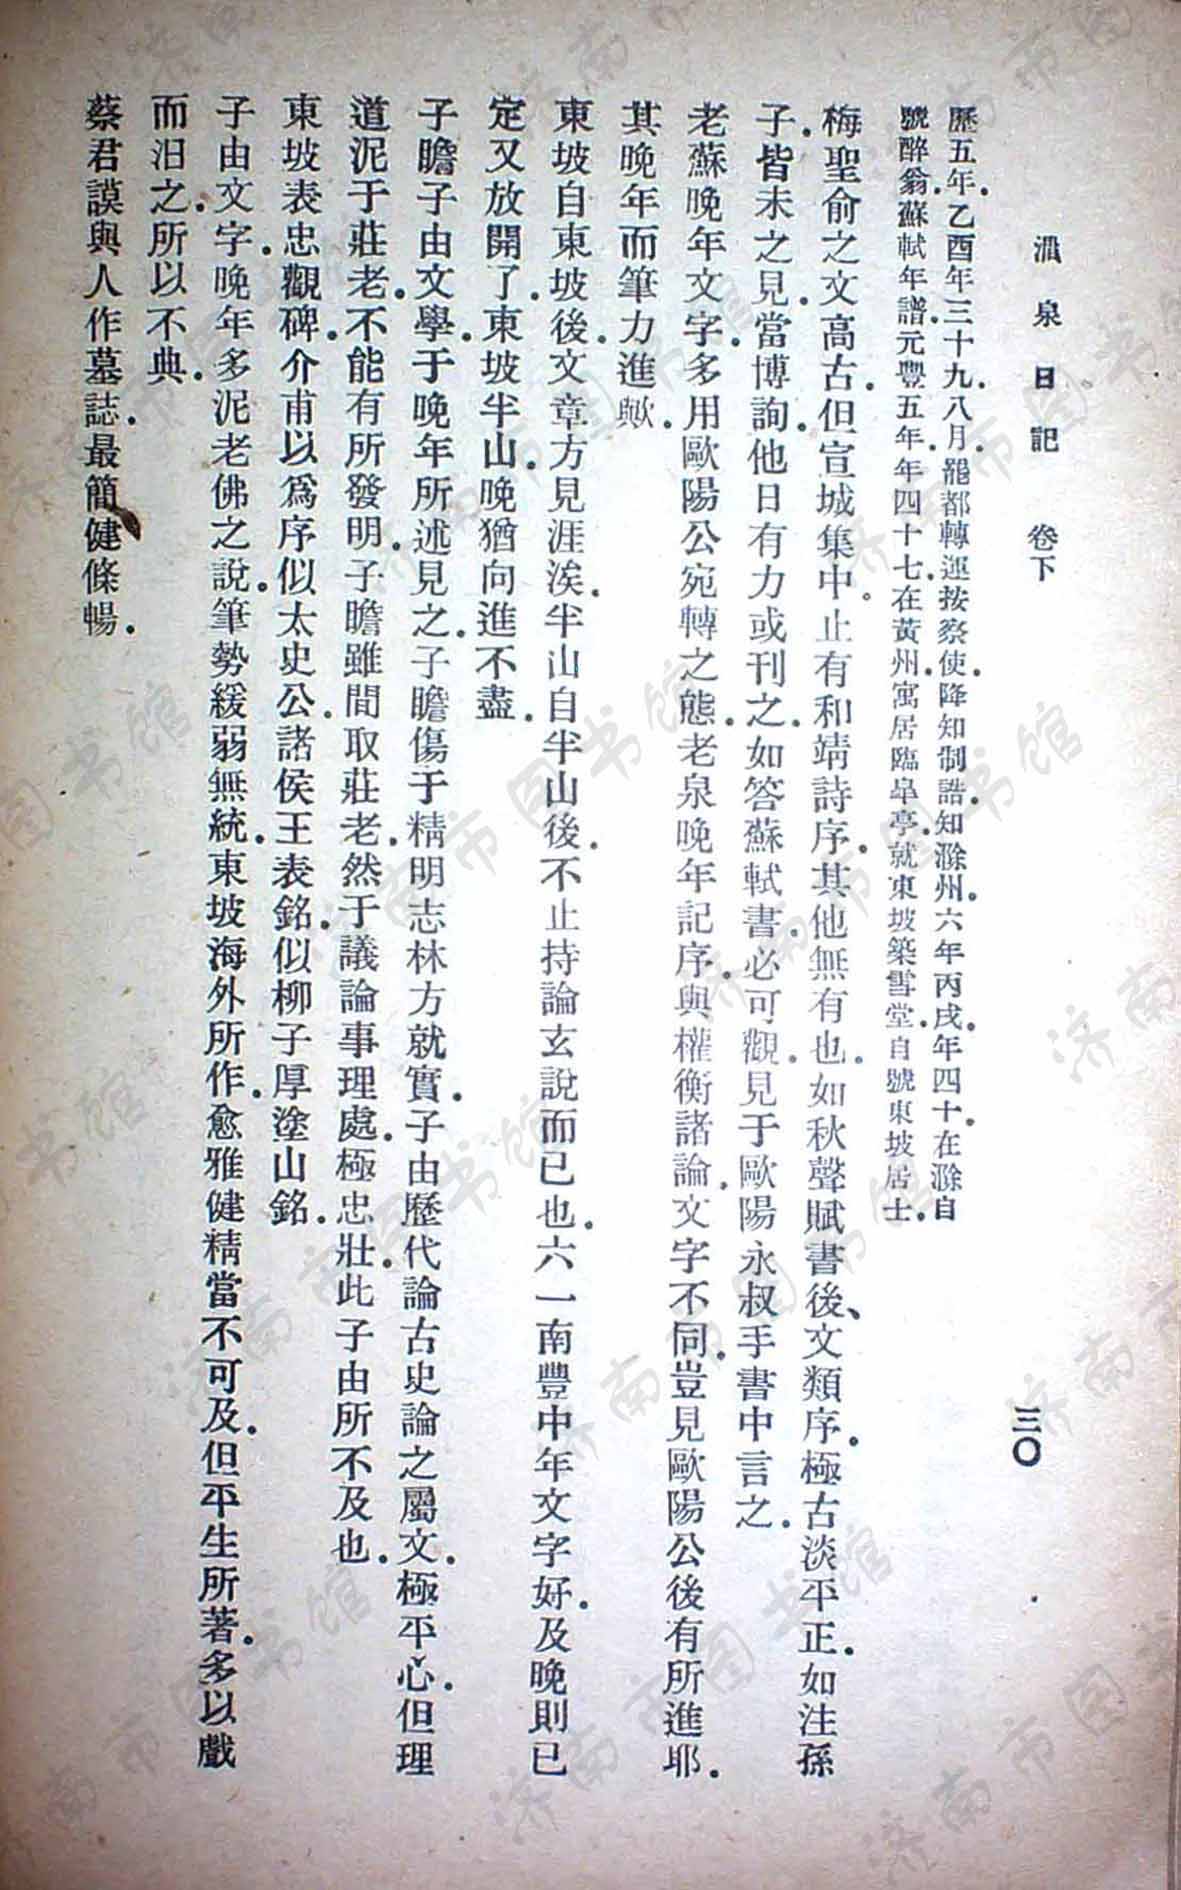 澗泉日記　卷下　三〇
歷五年．乙酉年三十九．八月．罷都轉運按察使．降知制誥．知滁州．六年丙戌．年四十．在滁自
號醉翁．蘇軾年譜．元豐五年．年四十七．在黃州．寓居臨皋亭．就東坡築雪堂．自號東坡居士．
梅聖俞之文高古．但宣城集中。止有和靖詩序．其他無有也．如秋聲賦書後、文類序．極古淡平正．如注孫
子．皆未之見．當博詢．他日有力或刊之．如答蘇軾書．必可觀．見于歐陽永叔手書中言之．
老蘇晚年文字．多用歐陽公宛轉之態．老泉晚年記序．與權衡諸論．文字不同．豈見歐陽公後有所進耶．
其晚年而筆力進歟．
東坡自東坡後．文章方見涯涘．半山自半山後．不止持論玄說而已也．六一南豐中年文字好．及晚則已
定又放開了．東坡半山．晚猶向進不盡．
子瞻子由文學．于晚年所述見之．子瞻傷于精明．志林方就實．子由歷代論古史論之屬文．極平心．但理
道泥于莊老．不能有所發明．子瞻雖間取莊老．然于議論事理處．極忠壯．此子由所不及也．
東坡表忠觀碑．介甫以爲序似太史公．諸侯王表銘．似柳子厚塗山銘．
子由文字．晚年多泥老佛之說．筆勢緩弱無統．東坡海外所作．愈雅健精當不可及．但平生所著．多以戲
而汨之．所以不典．
蔡君謨與人作墓誌．最簡健條暢．